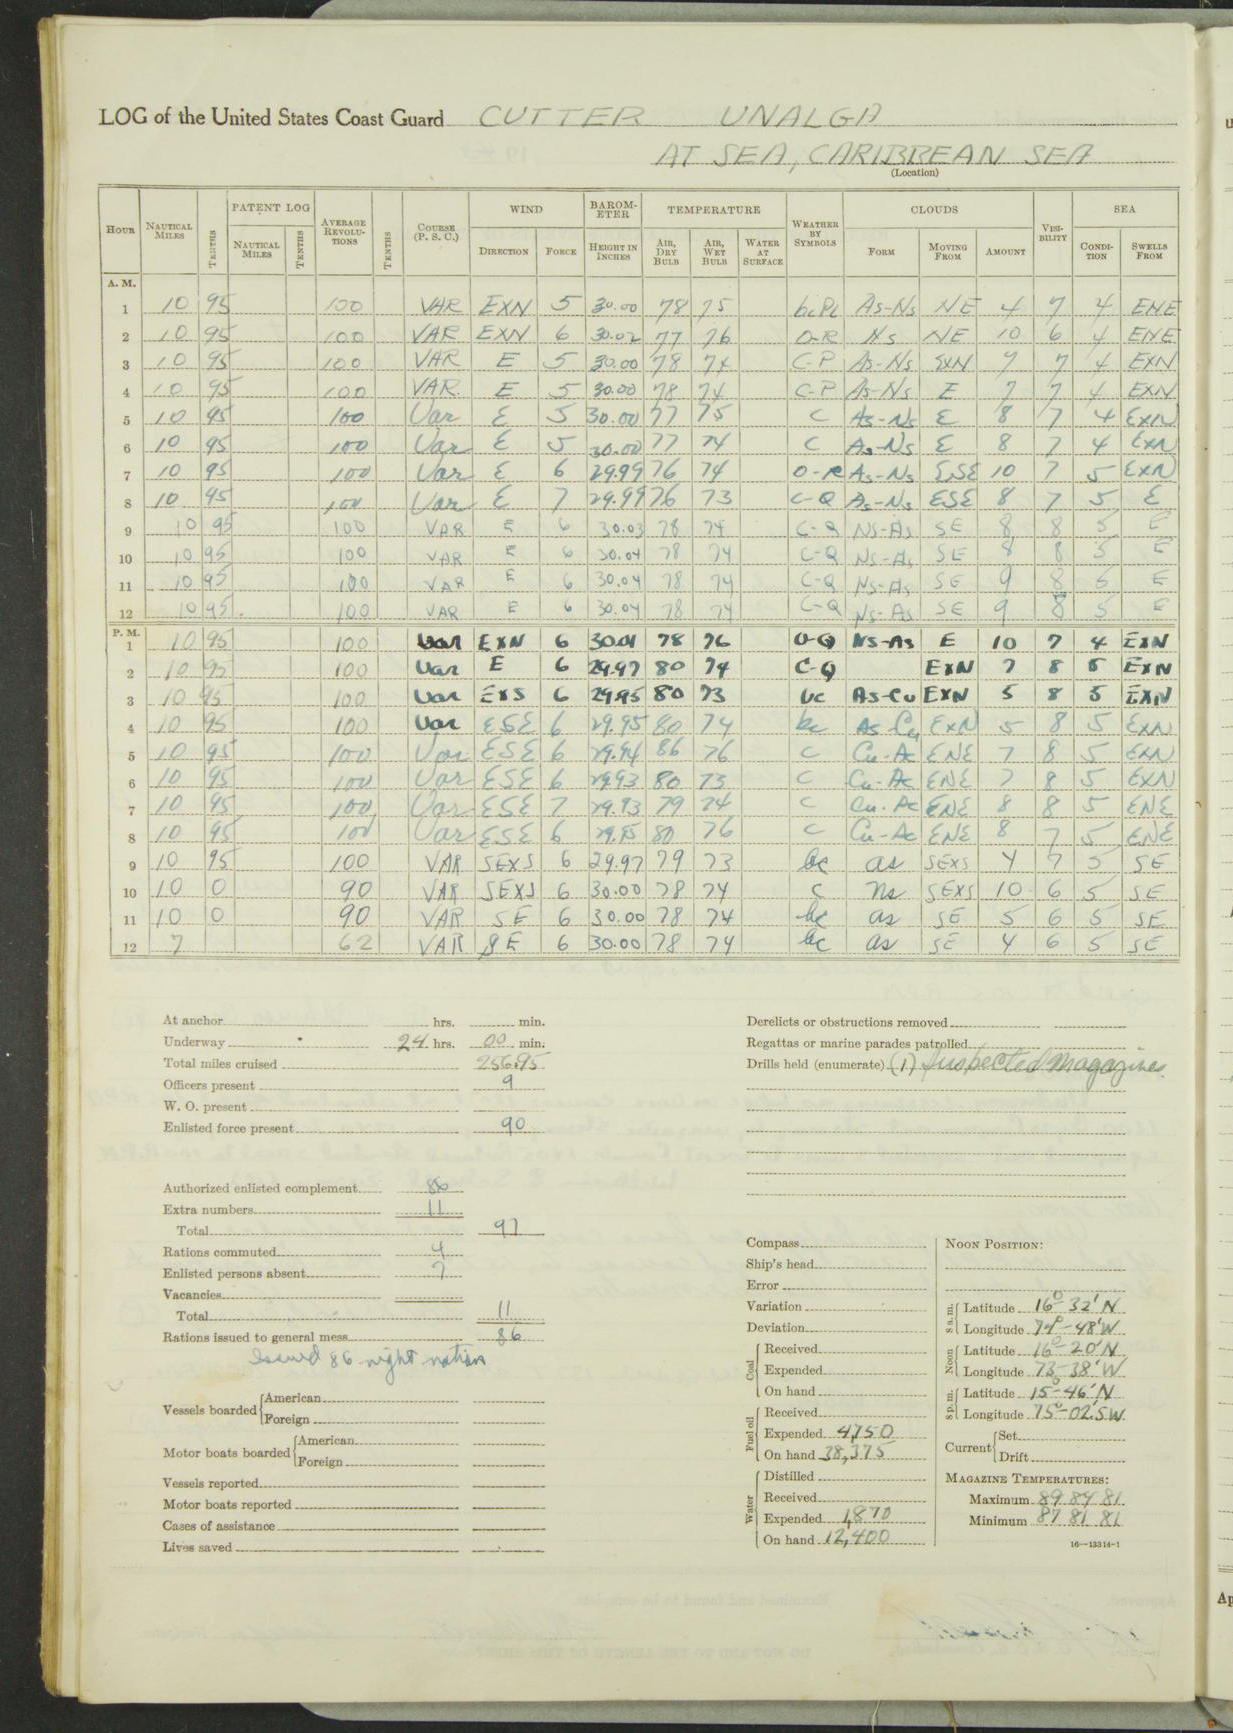 LOG of the United States Coast Guard CUTTER UNALGA
AT SEA, CARIBBEAN SEA
(Location)
HOUR NAUTICAL MILES TENTHS PATENT LOG NAUTICAL MILES TENTHS AVERAGE REVOLUTIONS TENTHS COURSE (P. S. C.) WIND DIRECTION FORCE BAROMETER HEIGHT IN INCHES TEMPERATURE AIR, DRY BULB AIR, WET BULB WATER AT SURFACE WEATHER BY SYMBOLS CLOUDS FORM MOVING FROM AMOUNT VISIBILITY SEA CONDITION SWELLS FROM
A. M.
1 10 95 100 VAR EXN 5 30.00 78 75 As-Ns NE 4 7 4 ENE
2 10 95 100 VAR EXN 6 30.02 77 76 O-R Ns NE 10 6 4 ENE
3 10 95 100 VAR E 5 30.00 78 74 C-P As-Ns EXN 7 7 4 EXN
4 10 95 100 VAR. E 5 30.00 78 74 C-P As-Ns E 7 7 4 EXN
5 10 95 100 Var E 5 30.00 77 75 C As-Ns E 8 7 4 EXN
6 10 95 100 Var E 5 30.00 77 74 C As-Ns E 8 7 4 EXN
7 10 95 100 Var E 6 29.99 76 74 O-R As-Ns ESE 10 7 5 EXN
8 10 95 100 Var E 7 29.99 76 73 C-Q As-Ns ESE 8 7 5 E
9 10 95 100 VAR E 6 30.03 78 74 C-Q NS-AS SE 8 8 5 E
10 10 95 100 VAR E 6 30.04 78 74 C-Q NS-AS SE 8 8 5 E
11 10 95 100 VAR E 6 30.04 78 74 C-Q NS-AS SE 9 8 5 E
12 10 95 100 VAR E 6 30.04 78 74 C-Q NS-AS SE 9 8 5 E
P. M.
1 10 95 100 Var EXN 6 30.01 78 76 O-Q NS-AS E 10 7 4 EXN
2 10 95 100 Var E 6 29.97 80 74 C-Q EXN 7 8 5 EXN
3 10 95 100 Var EXS 6 29.95 80 73 bc AS-Cu EXN 5 8 5 EXN
4 10 95 100 Var ESE 6 29.95 80 74 bc As-Cu EXN 5 8 5 EXN
5 10 95 100 Var ESE 6 29.94 86 76 C Cu-Ac ENE 7 8 5 EXN
6 10 95 100 Var ESE 6 29.93 80 73 C Cu-Ac ENE 7 8 5 EXN
7 10 95 100 Var ESE 7 29.93 79 74 C Cu-Ac ENE 8 8 5 ENE
8 10 95 100 Var ESE 6 29.95 80 76 C Cu-Ac ENE 8 7 5 ENE
9 10 95 100 VAR SEXS 6 29.97 79 73 bc as SEXS 4 7 5 SE
10 10 0 90 VAR SEXS 6 30.00 78 74 C ns SEXS 10 6 5 SE
11 10 0 90 VAR SE 6 30.00 78 74 bc as SE 5 6 5 SE
12 7 62 VAR SE 6 30.00 78 74 bc as SE 4 6 5 SE
At anchor hrs. min.
Underway 24 hrs. 00 min.
Total miles cruised 256.95
Officers present 9
W. O. present
Enlisted force present 90
Authorized enlisted complement 86
Extra numbers 11
Total 97
Rations commuted 4
Enlisted persons absent 7
Vacancies
Total 11
Rations issued to general mess 86
Issued 86 night ration
Vessels boarded American
Foreign
Motor boats boarded American
Foreign
Vessels reported
Motor boats reported
Cases of assistance
Lives saved
Derelicts or obstructions removed
Regattas or marine parades patrolled
Drills held (enumerate) (1) Inspected Magazines.
Compass
Ship's head
Error
Variation
Deviation
Coal Received
Expended
On hand
Fuel oil Received
Expended 4,750
On hand 38,375
Water Distilled
Received
Expended 1,870
On hand 12,400
NOON POSITION:
8 a.m. Latitude 16°-32'N
Longitude 74°-48'W
Noon Latitude 16°-20'N
Longitude 73-38'W
8 p.m. Latitude 15°-46'N
Longitude 75°-02.5W
Current Set
Drift
MAGAZINE TEMPERATURES:
Maximum 89 84 81
Minimum 87 81 81
16—13314-1